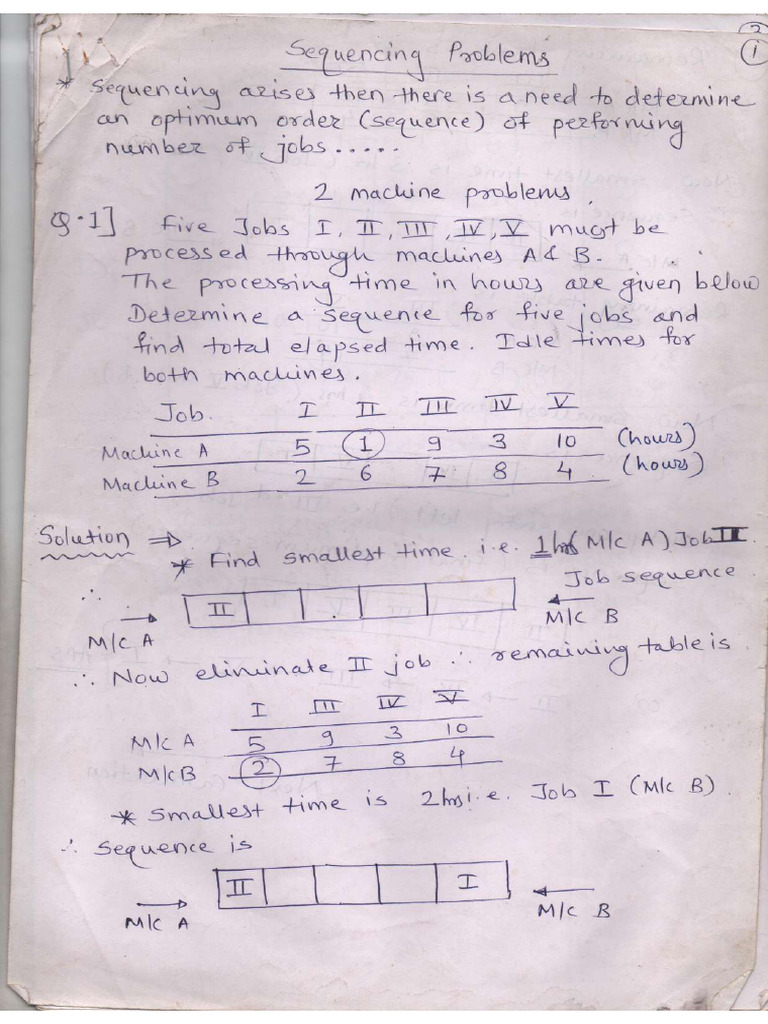 2
1
Sequencing Problems
* Sequencing arises then there is a need to determine
an optimum order (sequence) of performing
number of jobs.....
2 machine problems.
Q.1] Five Jobs I, II, III, IV, V must be
processed through machines A & B.
The processing time in hours are given below
Determine a sequence for five jobs and
find total elapsed time. Idle times for
both machines.
Job. I II III IV V
Machine A 5 1 9 3 10 (hours)
Machine B 2 6 7 8 4 (hours)
Solution ⇒
* Find smallest time. i.e. 1 hr (M/c A) Job II.
Job sequence
∴ → II ←
M/c A M/c B
∴ Now eliminate II job ∴ remaining table is.
I III IV V
M/c A 5 9 3 10
M/c B 2 7 8 4
* Smallest time is 2 hrs i.e. Job I (M/c B).
∴ Sequence is
→ II I ←
M/c A M/c B